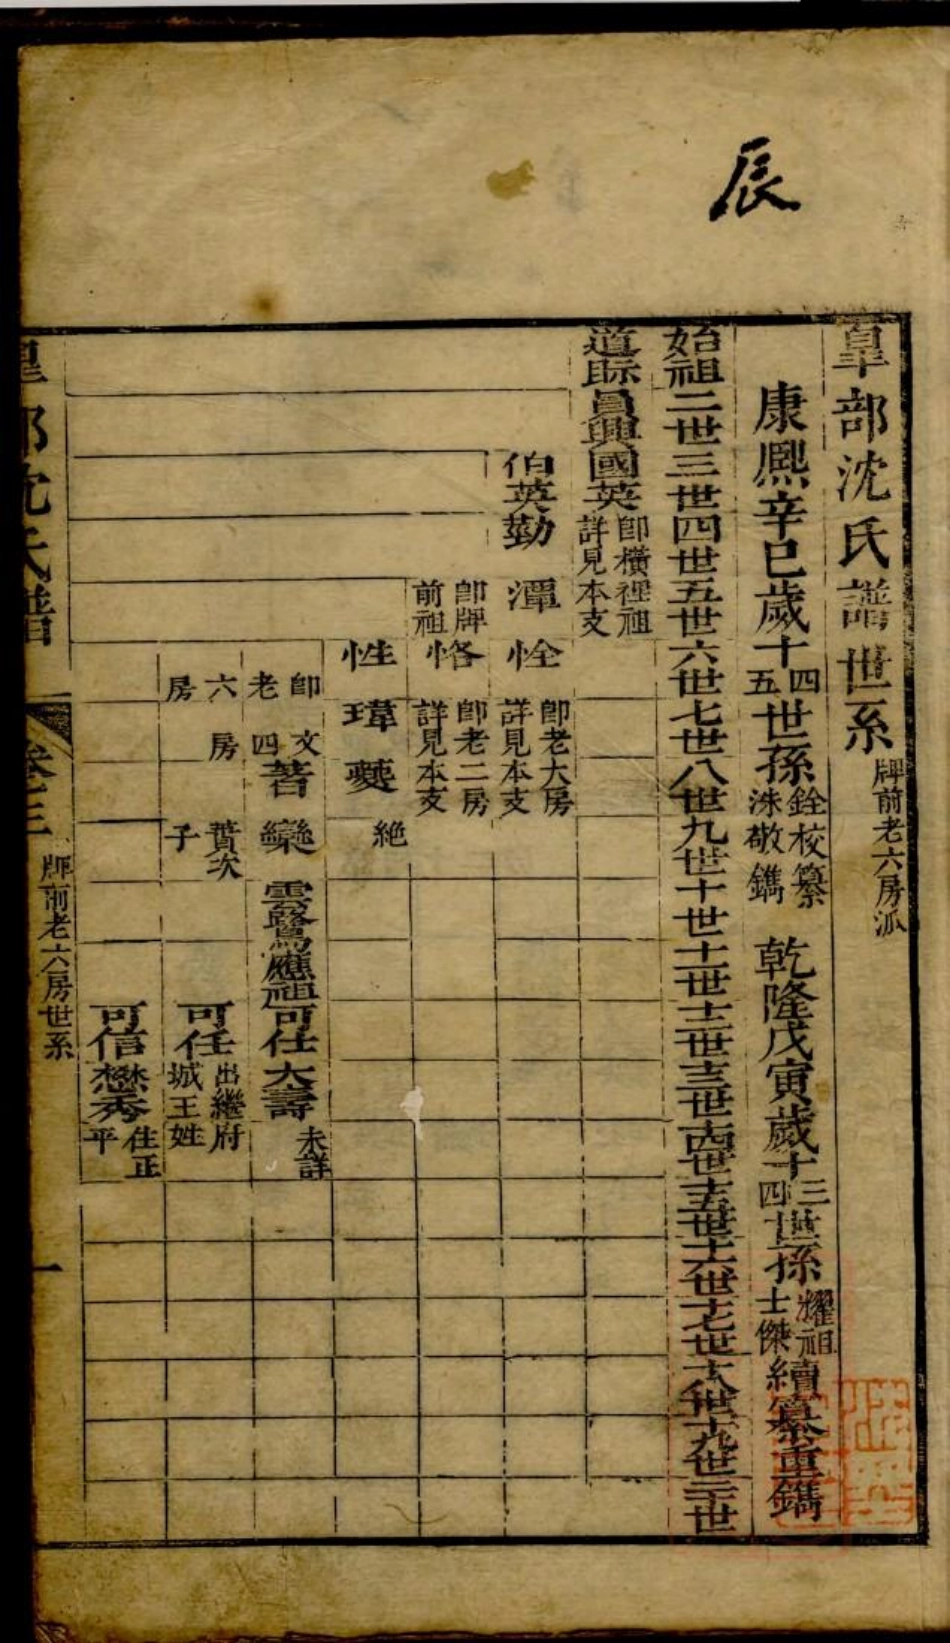 辰
皐部沈氏譜世系 牌前老六房派
康熙辛巳歲十四五世孫銓校纂洙敬鐫 乾隆戊寅歲十三四世孫耀祖士傑續纂重鐫
始祖二世三世四世五世六世七世八世九世十世十一世十二世十三世十四世十五世十六世十七世十八世十九世二十世
道眎員興國英卽橫裡祖詳見本支
伯英勤潭恮卽老大房詳見本支
卽牌前祖恪卽老二房詳見本支
性瑋夔絶
卽老六房文四房蓍欒蕡次子雲鷺應祖可仕大壽未詳
可任出繼府城王姓
可信懋秀住正平
皐部沈氏譜 卷三 牌前老六房世系 一